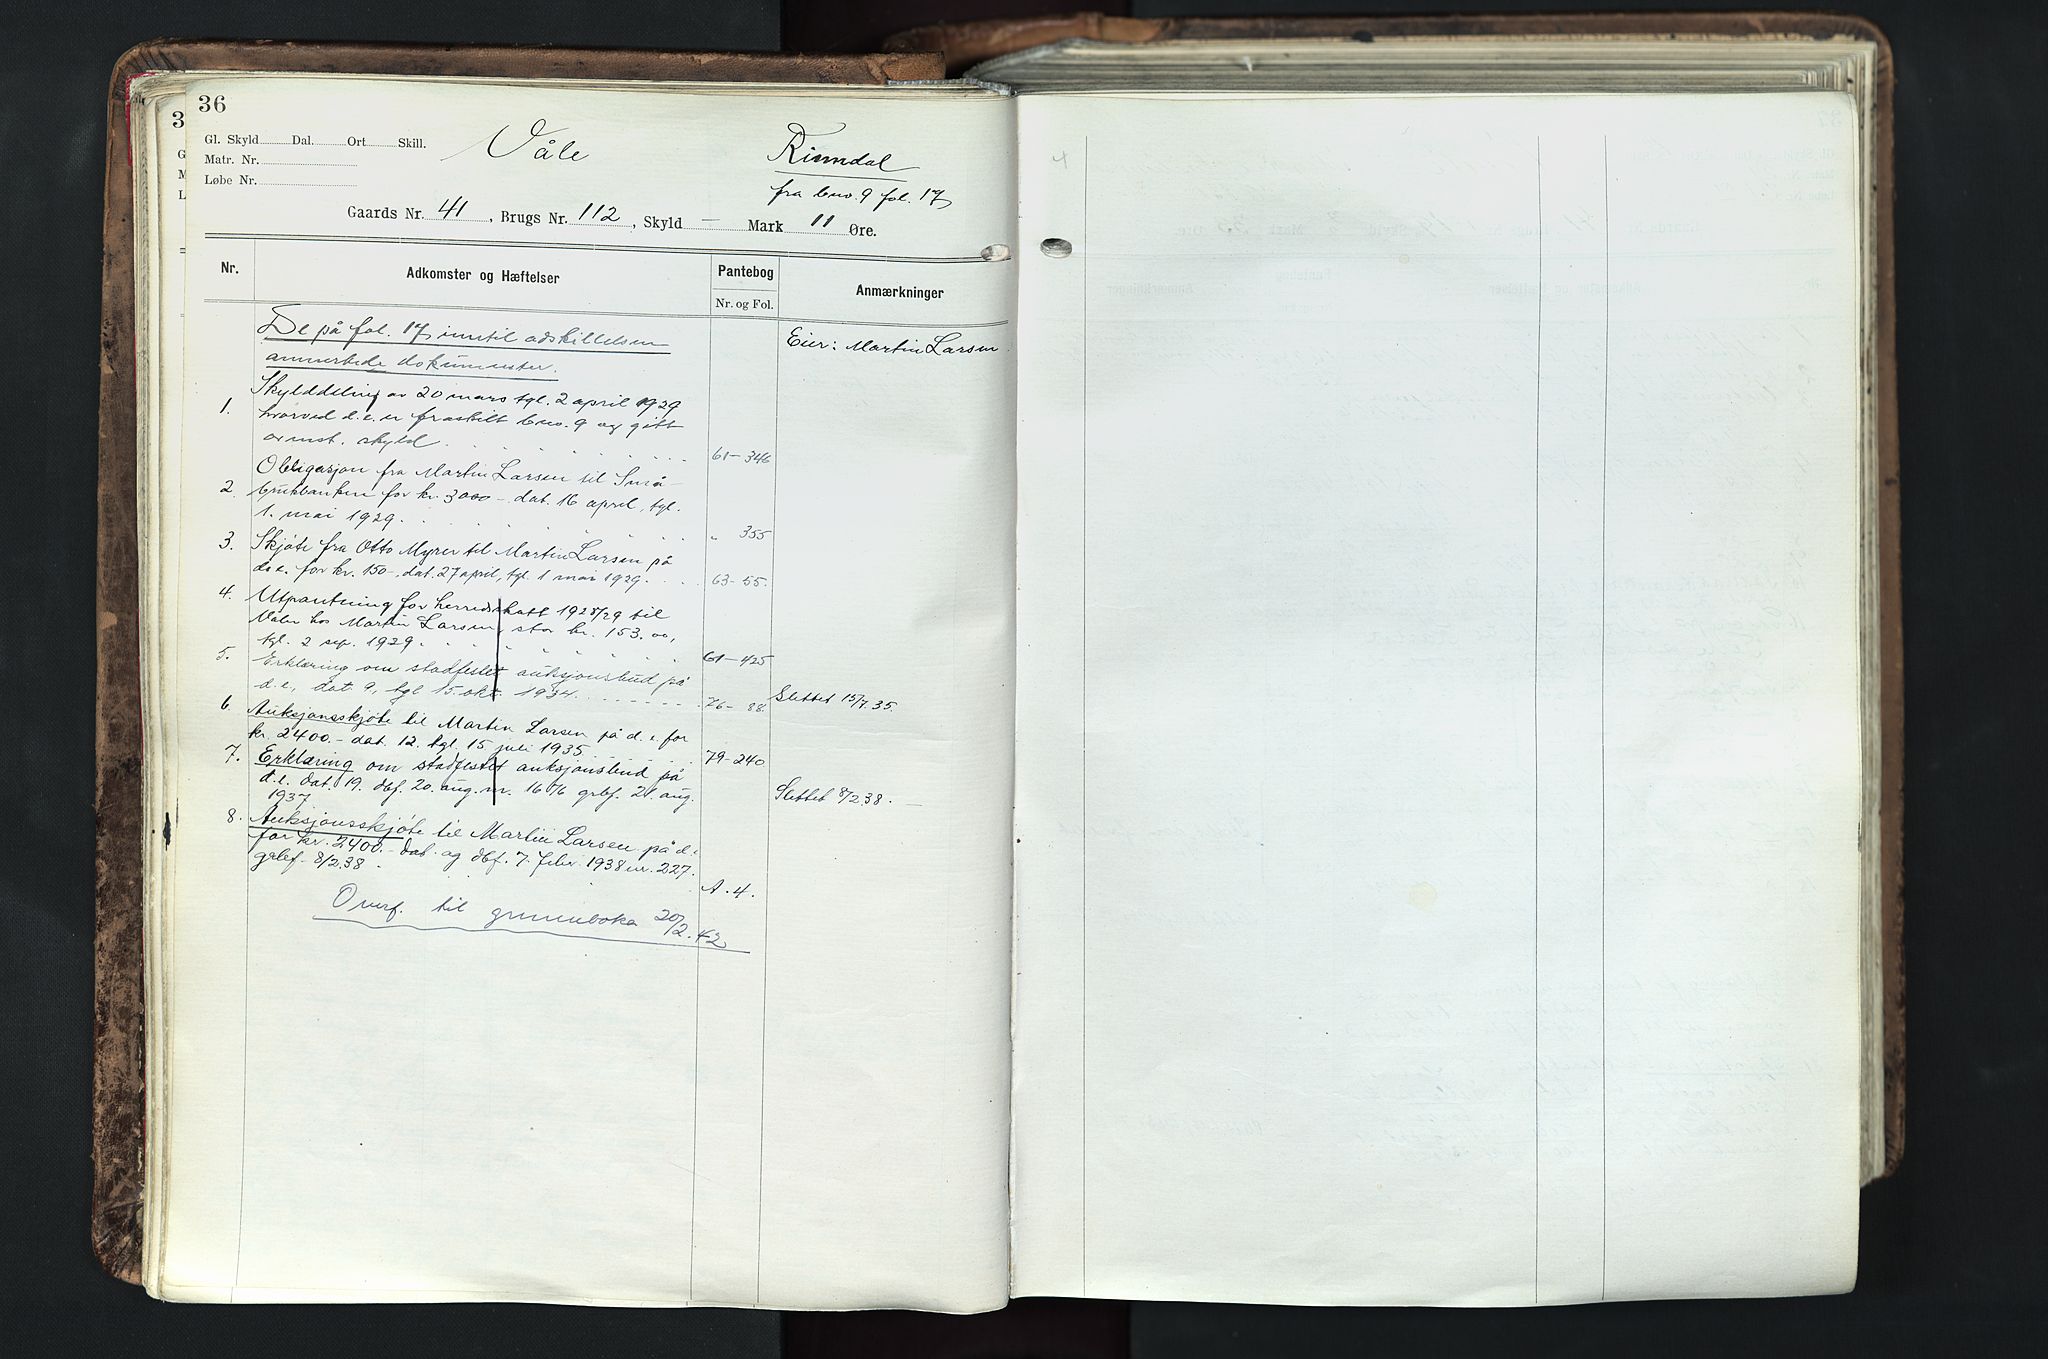 36
Gl. Skyld Dal. Ort Skill.
Matr. Nr.
Løbe Nr.
Våle
fra bno. 9 fol. 17
Gaards Nr. 41, Brugs Nr. 112, Skyld — Mark 11 Øre.
Nr.
Adkomster og Hæftelser
Pantebog
Nr. og Fol.
Anmærkninger
De på fol. 17 inntil adskillelsen
anmerkede dokumenter.
Eier: Martin Larsen.
1. Skylddeling av 20 mars tgl. 2 april 1929
hvorved d.e. er fraskilt bno. 9 og gitt
ovenst. skyld. 61–346
2. Obligasjon fra Martin Larsen til Små-
brukbanken for kr. 3000.– dat. 16 april, tgl.
1. mai 1929. " 355
3. Skjøte fra Otto Myrer til Martin Larsen på
d.e. for kr. 150–, dat. 27 april, tgl. 1 mai 1929. 63–55.
4. Utpantning for herredsskatt 1928/29 til
Våler hos Martin Larsen, stor kr. 153.00,
tgl. 2 sep. 1929. 61–425
5. Erklæring om stadfestet auksjonsbud på
d.e., dat. 9, tgl 15. okt. 1934. 76–88. Slettet 15/7.35.
6. Auksjonsskjøte til Martin Larsen på d.e. for
kr. 2400.– dat. 12. tgl. 15 juli 1935. 79–240
7. Erklæring om stadfestet auksjonsbud på
d.e. dat. 19. dbf. 20. aug. nr. 1676 grbf. 21. aug.
1937 Slettet 8/2.38. —
8. Auksjonsskjøte til Martin Larsen på d.e
for kr. 2400.– dat. og dbf. 7. febr. 1938 nr. 227.
grbf. 8/2.38. A. 4.
Overf. til grunnboka 20/2.42